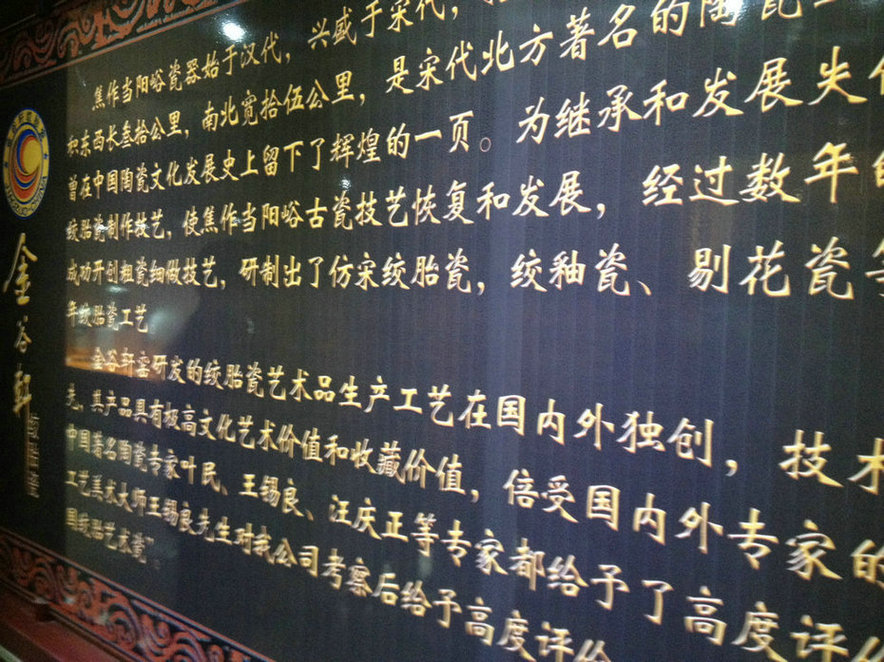 焦作当阳峪瓷器始于汉代，兴盛于宋代，
积东西长叁拾公里，南北宽拾伍公里，是宋代北方著名的陶瓷
曾在中国陶瓷文化发展史上留下了辉煌的一页。为继承和发展失
绞胎瓷制作技艺，使焦作当阳峪古瓷技艺恢复和发展，经过数年的
成功开创粗瓷细做技艺，研制出了仿宋绞胎瓷，绞釉瓷、剔花瓷等
年绞胎瓷工艺
金谷轩窑研发的绞胎瓷艺术品生产工艺在国内外独创，技术
先，其产品具有极高文化艺术价值和收藏价值，倍受国内外专家的
中国著名陶瓷专家叶民、王锡良、汪庆正等专家都给予了高度评
工艺美术大师王锡良先生对我公司考察后给予高度评价
国绞胎艺术瓷”。
金谷轩
绞胎瓷